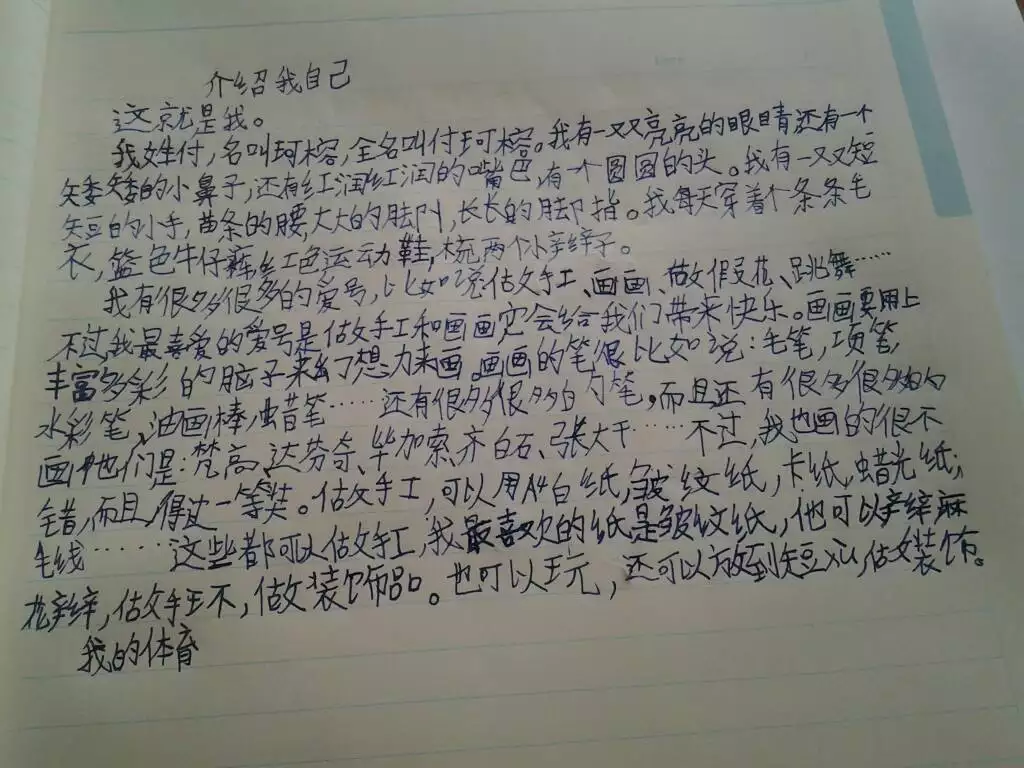 介绍我自己
这就是我。
我姓付,名叫珂榕,全名叫付珂榕。我有一双又亮亮的眼睛还有一个
矮矮的小鼻子,还有红润红润的嘴色,有一个圆圆的头。我有一双又短
短的小手,曲条的腰,大大的脚,长长的脚指。我每天穿着个条条毛
衣,篮色牛仔裤,红色运动鞋,梳两个小辫子。
我有很多很多的爱号,比如说做手工、画画、做假花、跳舞……
不过,我最喜爱的爱号是做手工和画画它会给我们带来快乐。画画要用上
丰富多彩的脑子来幻想力来画。画画的笔很比如说:毛笔,项笔,
水彩笔、油画棒,蜡笔……还有很多很多的笔,而且还有很多很多的
画他们是:梵高、达芬奇、毕加索、齐白石、张大千……不过,我也画的很不
错,而且,得过一等奖。做手工,可以用A4白纸,皱纹纸,卡纸,蜡光纸;
毛线……这些都可以做手工,我最喜欢的纸是皱纹纸,他可以辫麻
花辫,做手工不,做装饰品。也可以玩,还可以放到,做装饰。
我的体育